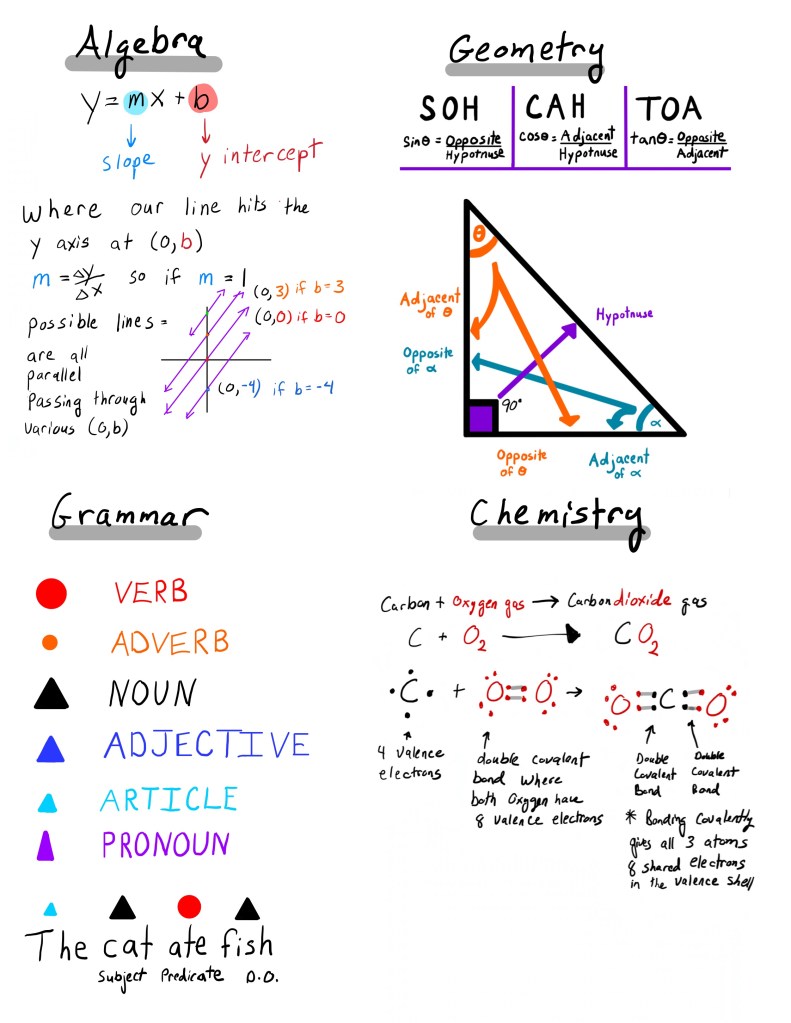 Algebra
y = mx + b
slope
y intercept
where our line hits the
y axis at (0,b)
m = Δy/Δx so if m = 1
possible lines =
are all
parallel
Passing through
various (0,b)
(0,3) if b=3
(0,0) if b=0
(0,-4) if b=-4
Geometry
SOH
sinθ = Opposite/Hypotnuse
CAH
cosθ = Adjacent/Hypotnuse
TOA
tanθ = Opposite/Adjacent
θ
Adjacent
of θ
Hypotnuse
Opposite
of α
90°
α
Opposite
of θ
Adjacent
of α
Grammar
VERB
ADVERB
NOUN
ADJECTIVE
ARTICLE
PRONOUN
The cat ate fish
Subject Predicate D.O.
Chemistry
Carbon + Oxygen gas → Carbon dioxide gas
C + O₂ → CO₂
C + O=O → O=C=O
4 Valence
electrons
double covalent
bond where
both Oxygen have
8 valence electrons
Double
Covalent
Bond
Double
Covalent
Bond
* Bonding Covalently
gives all 3 atoms
8 shared electrons
in the valence shell